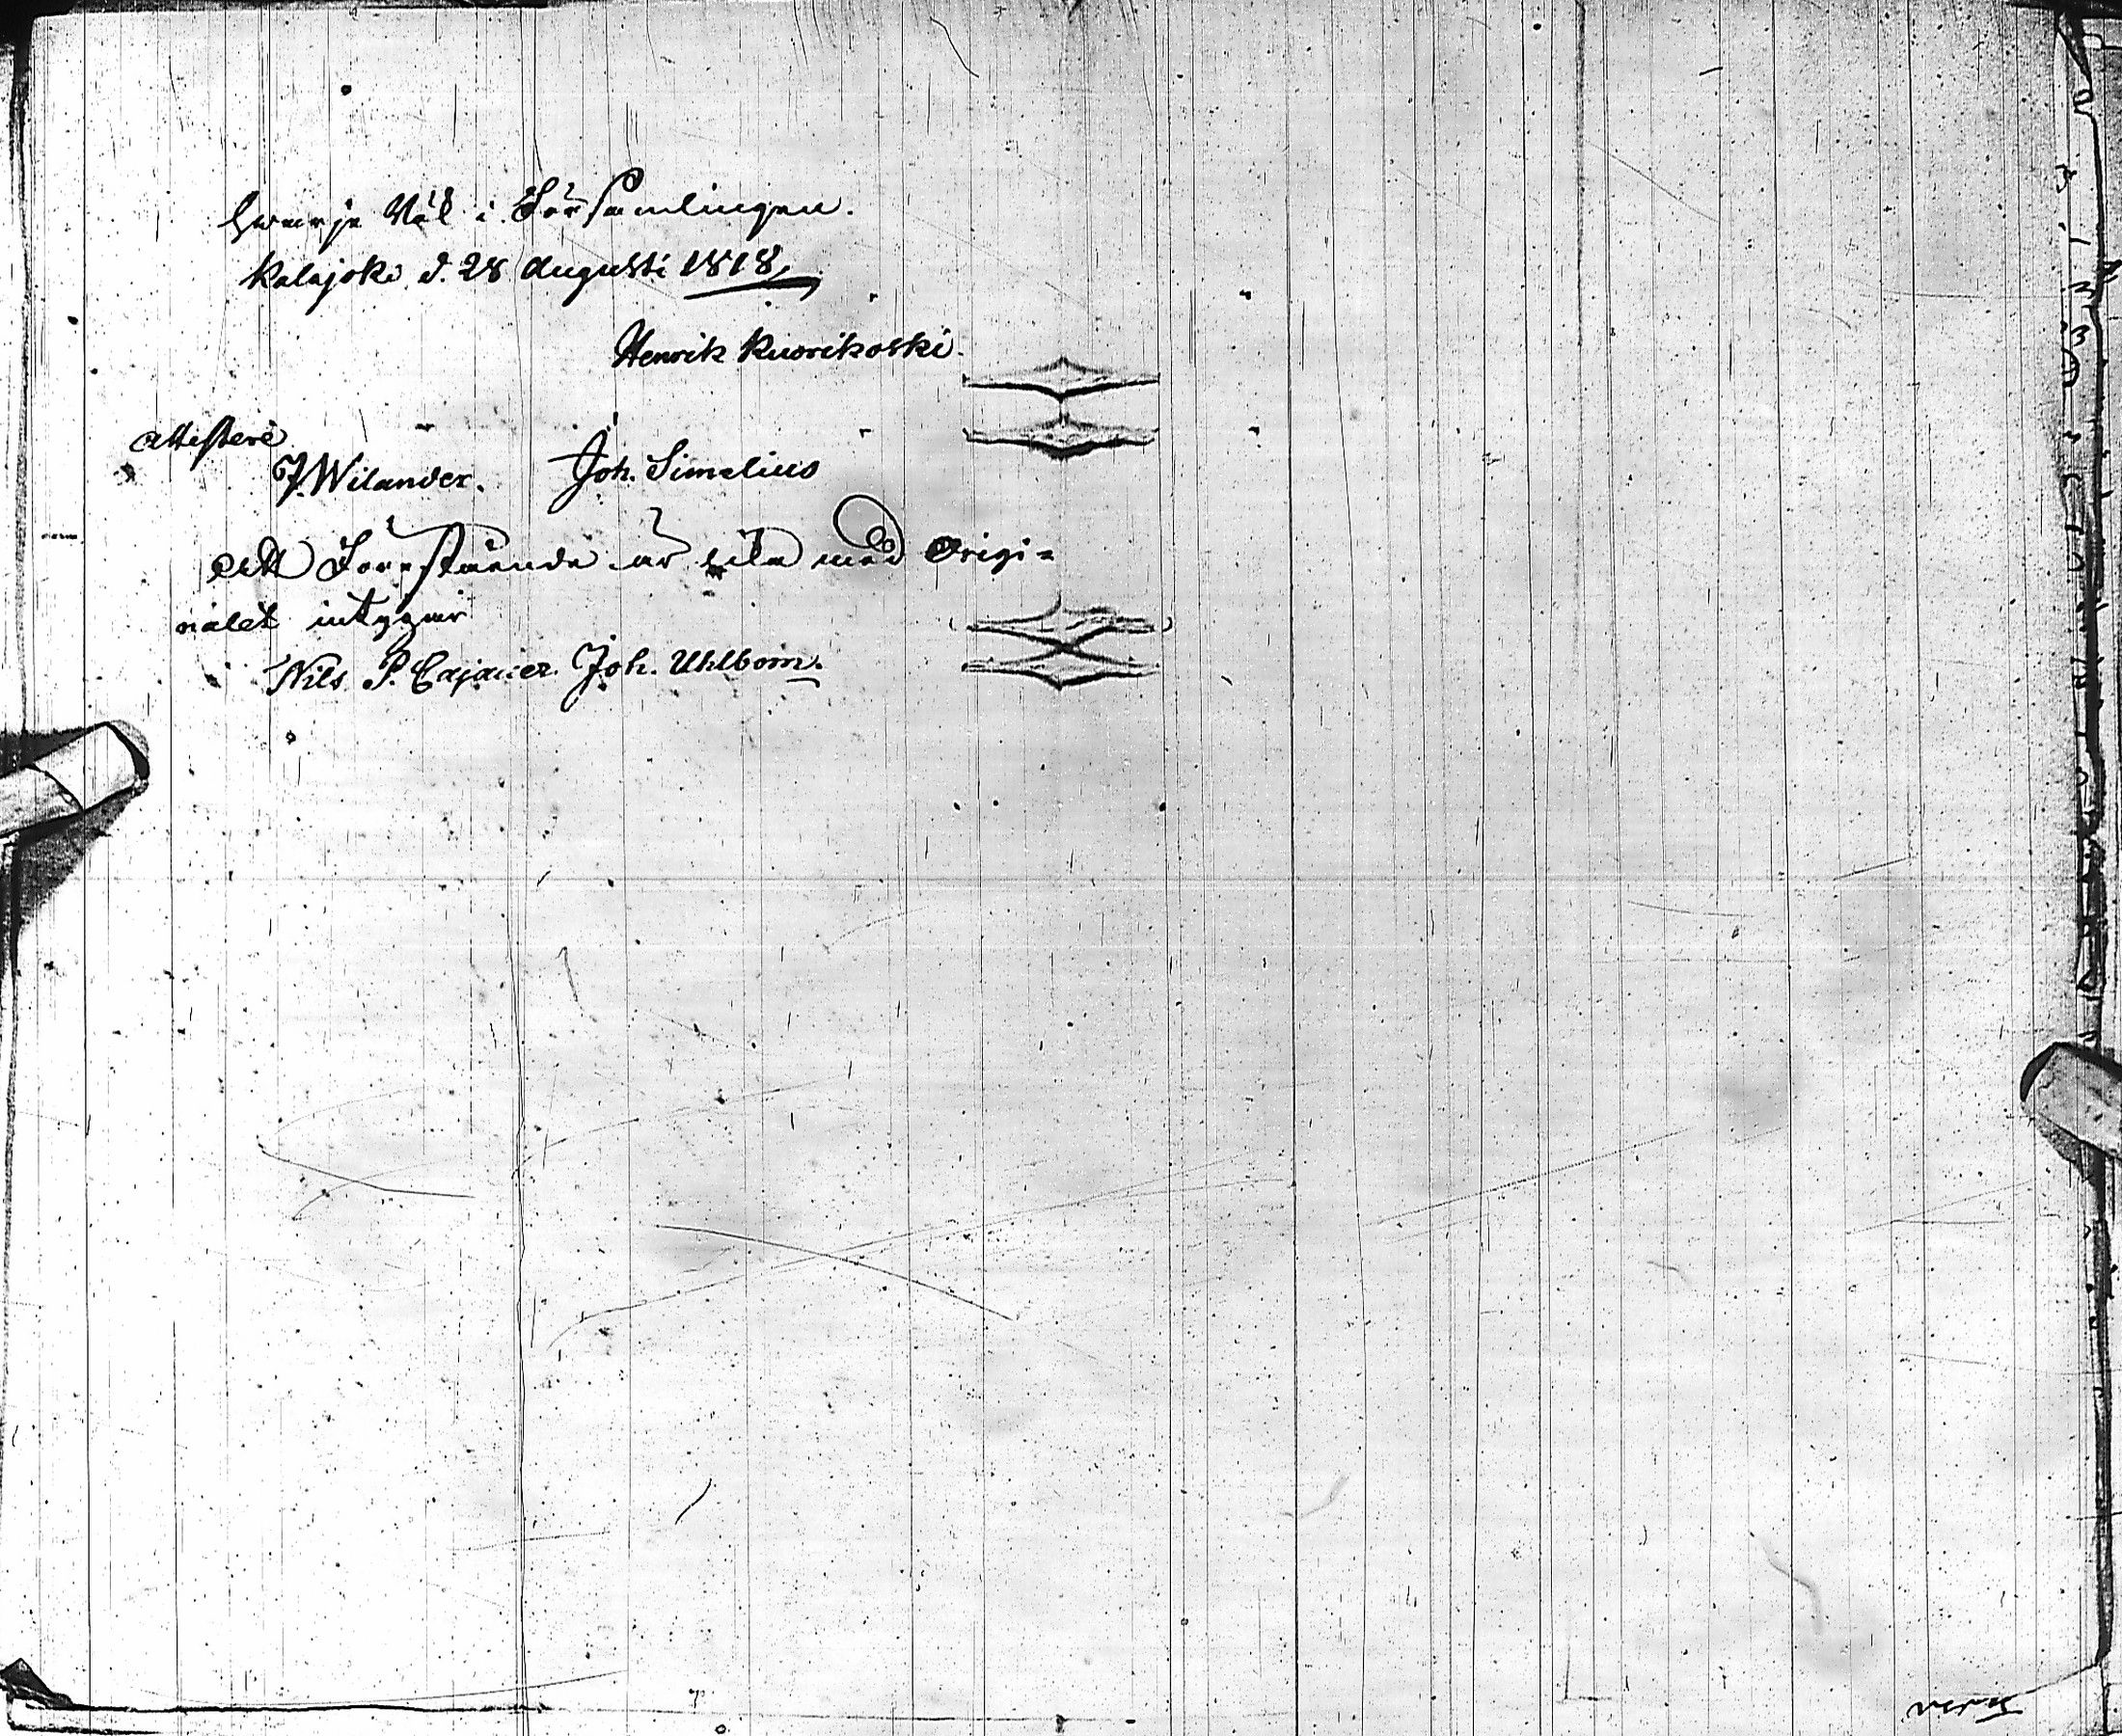 hwarje Rök i Församlingen.
Kalajoki d. 28 Augusti 1818,
Henrik Kuorikoski.
attestera
J. Wilander. Joh. Simelius
Att Förestående är lika med Origi=
nalet intygar
Nils P. Cajaner. Joh. Uhlbom.